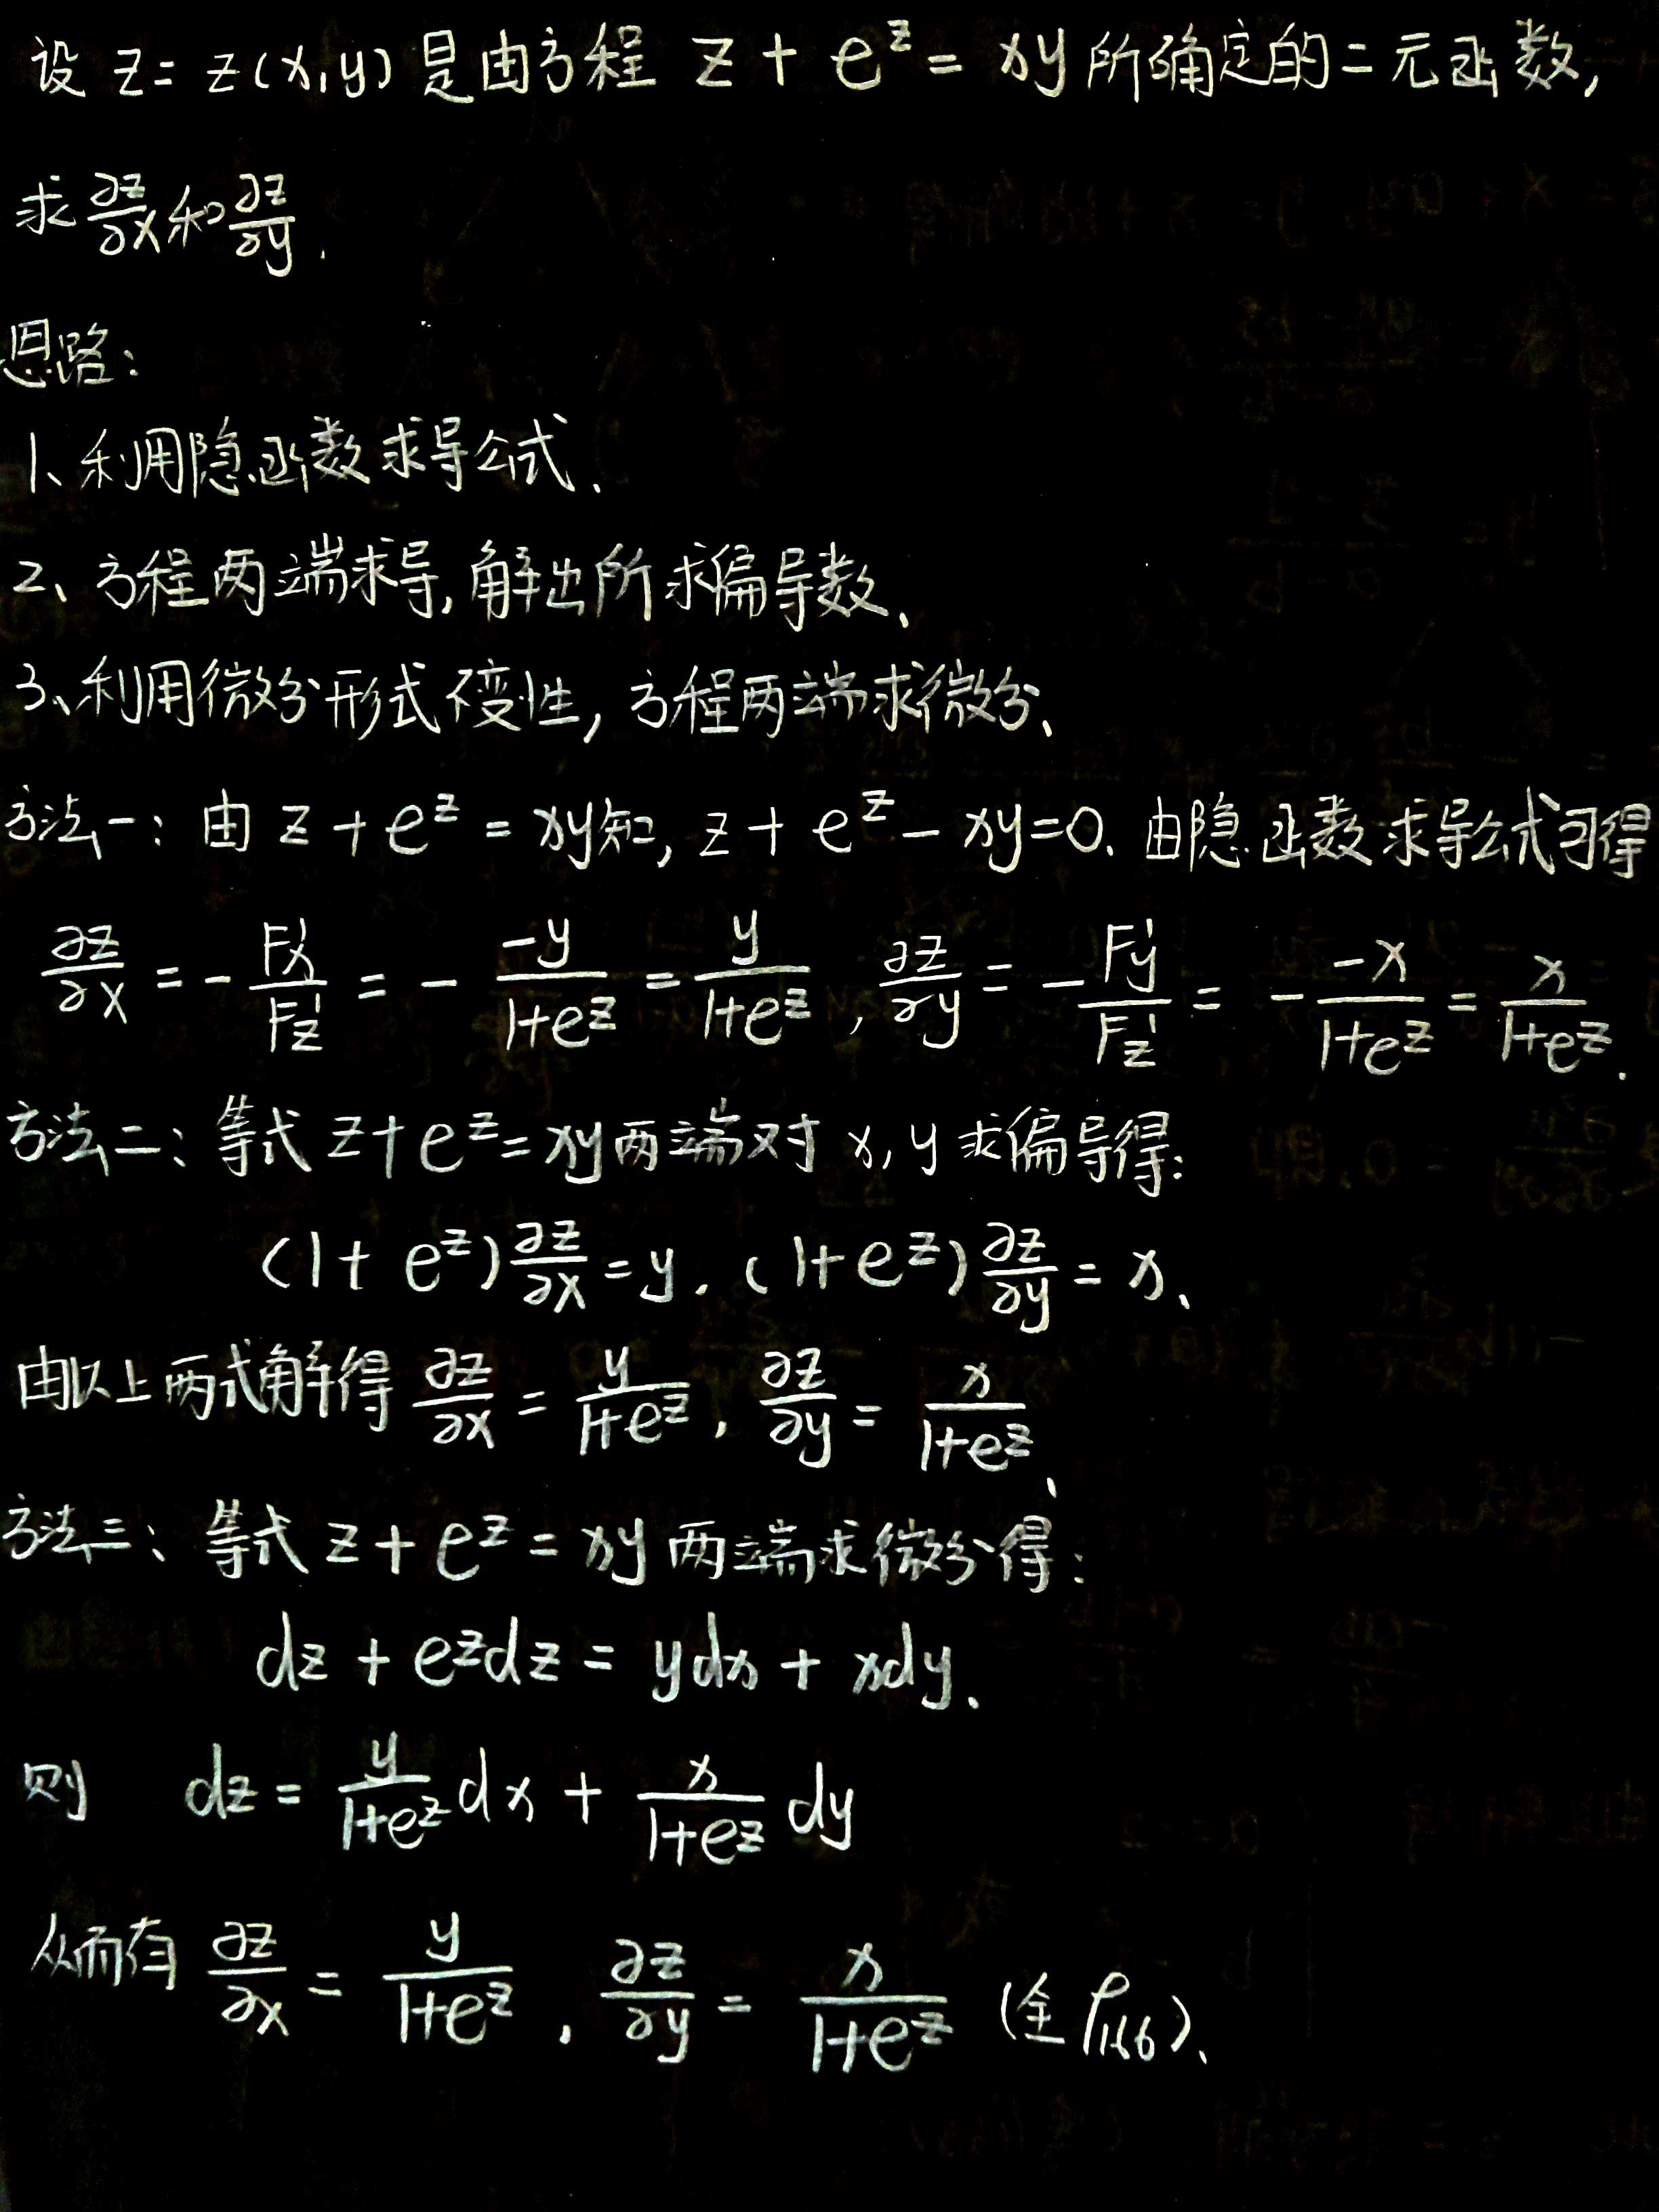 设 z = z(x,y) 是由方程 z + e^z = xy 所确定的二元函数,
求 ∂z/∂x 和 ∂z/∂y.
思路:
1、利用隐函数求导公式.
2、方程两端求导, 解出所求偏导数、
3、利用微分形式不变性, 方程两端求微分、
方法一: 由 z + e^z = xy知, z + e^z - xy = 0. 由隐函数求导公式可得
∂z/∂x = - F'x/F'z = - (-y)/(1+e^z) = y/(1+e^z), ∂z/∂y = - F'y/F'z = - (-x)/(1+e^z) = x/(1+e^z).
方法二: 等式 z + e^z = xy 两端对 x, y 求偏导得:
(1 + e^z) ∂z/∂x = y. (1 + e^z) ∂z/∂y = x、
由以上两式解得 ∂z/∂x = y/(1+e^z), ∂z/∂y = x/(1+e^z)、
方法三: 等式 z + e^z = xy 两端求微分得:
dz + e^z dz = ydx + xdy、
则 dz = y/(1+e^z) dx + x/(1+e^z) dy
从而有 ∂z/∂x = y/(1+e^z), ∂z/∂y = x/(1+e^z) (全 )、